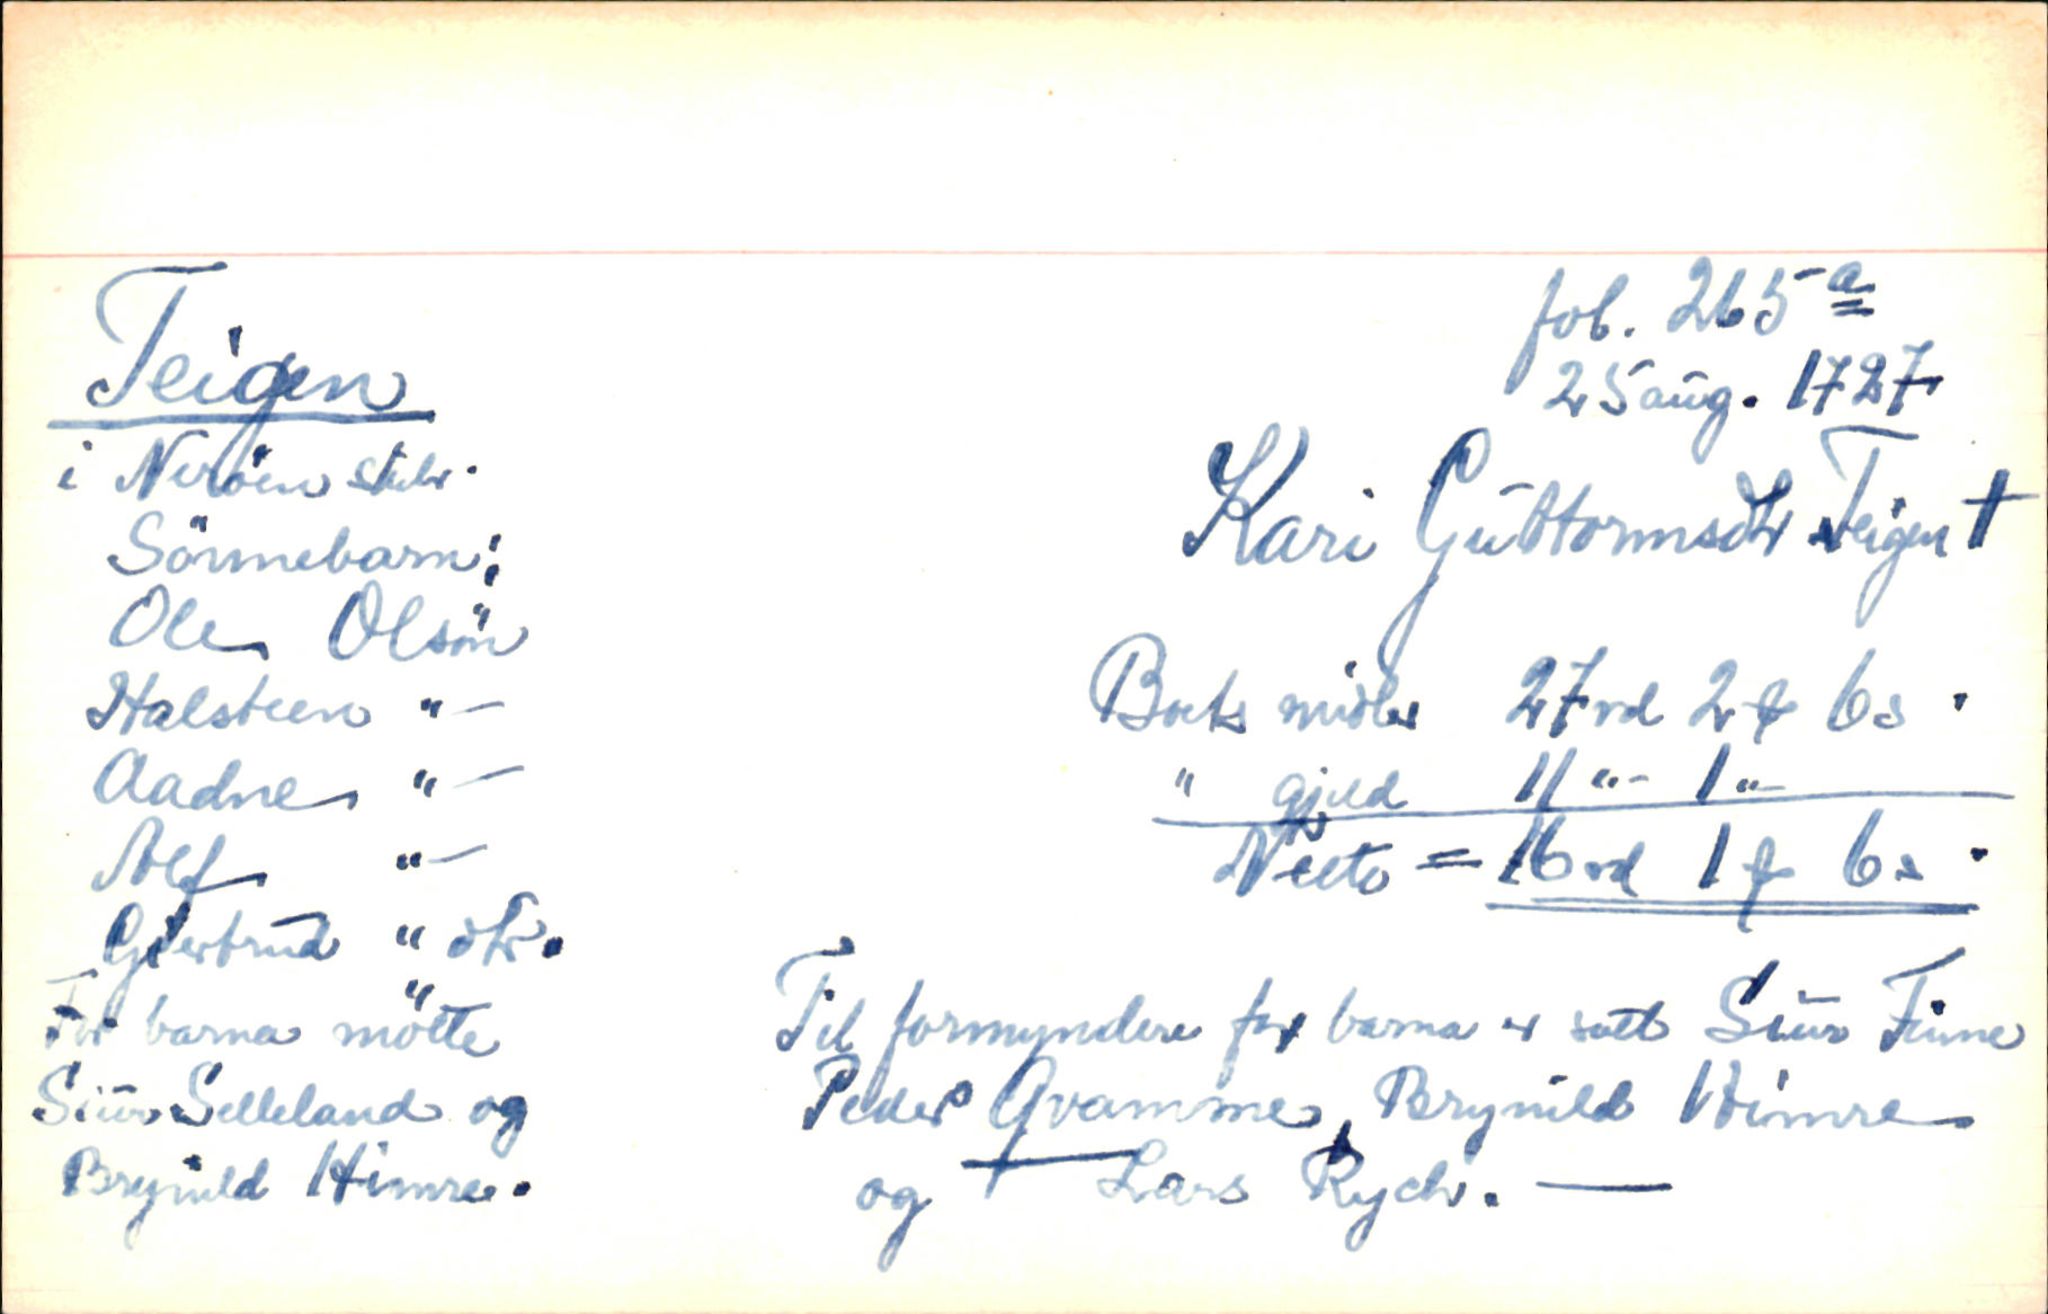 Teigen
i Neröen skbr.
Sönnebarn:
Ole Olsön
Halsteen "—
Aadne "—
Alf "—
Giertrud " dtr.
For barna mötte
Siur Selleland og
Brynild Himre.
fol. 265 a
25 aug. 1727
Kari Guttormsdtr Teigen †
Boets midler 27 rd 2 ƒ 6 s.
" gjeld 11 "— 1 "—
Netto = 16 rd 1 ƒ 6 s.
Til formyndere for barna er satt Siur Finne
Peder Qvamme, Brynild Himre
og Lars Rych. —